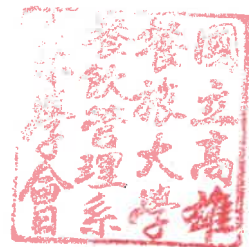 國立高雄
餐旅大學
餐飲管理系
學會